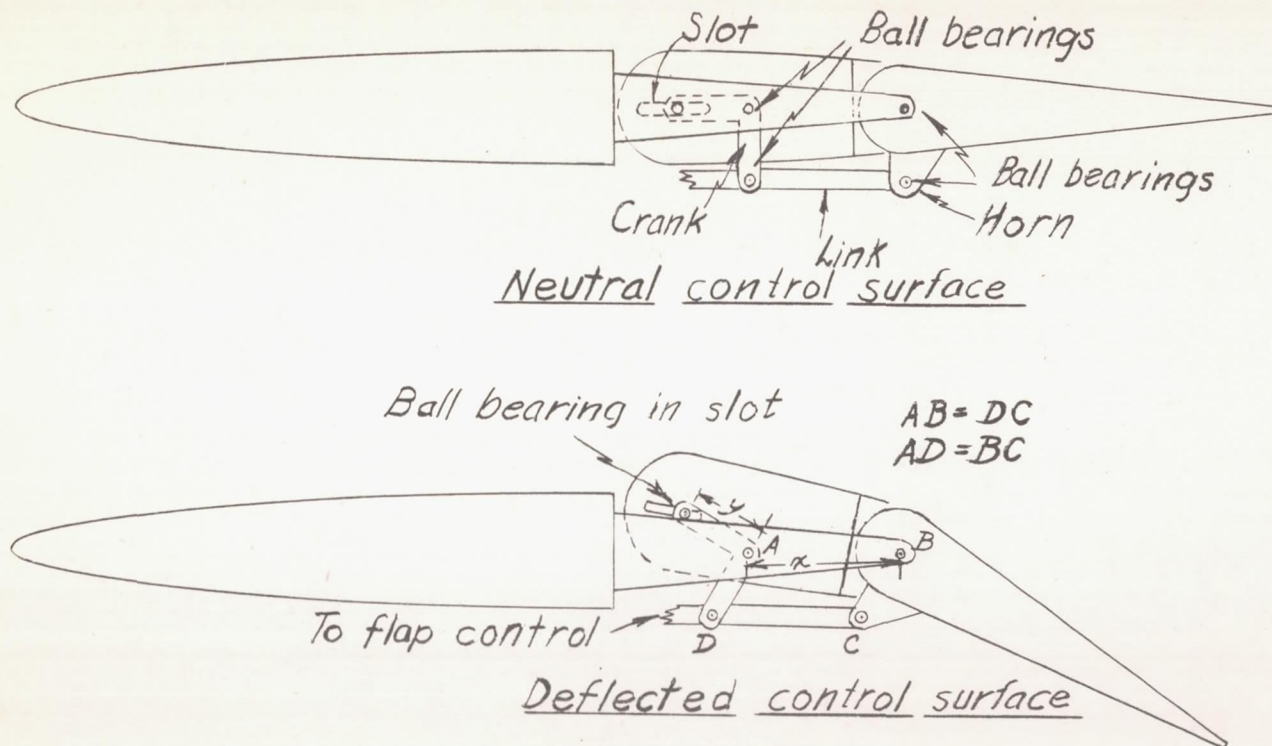 Slot
Ball bearings
Crank
Link
Ball bearings
Horn
Neutral control surface
Ball bearing in slot
AB = DC
AD = BC
y
A
x
B
To flap control
D
C
Deflected control surface